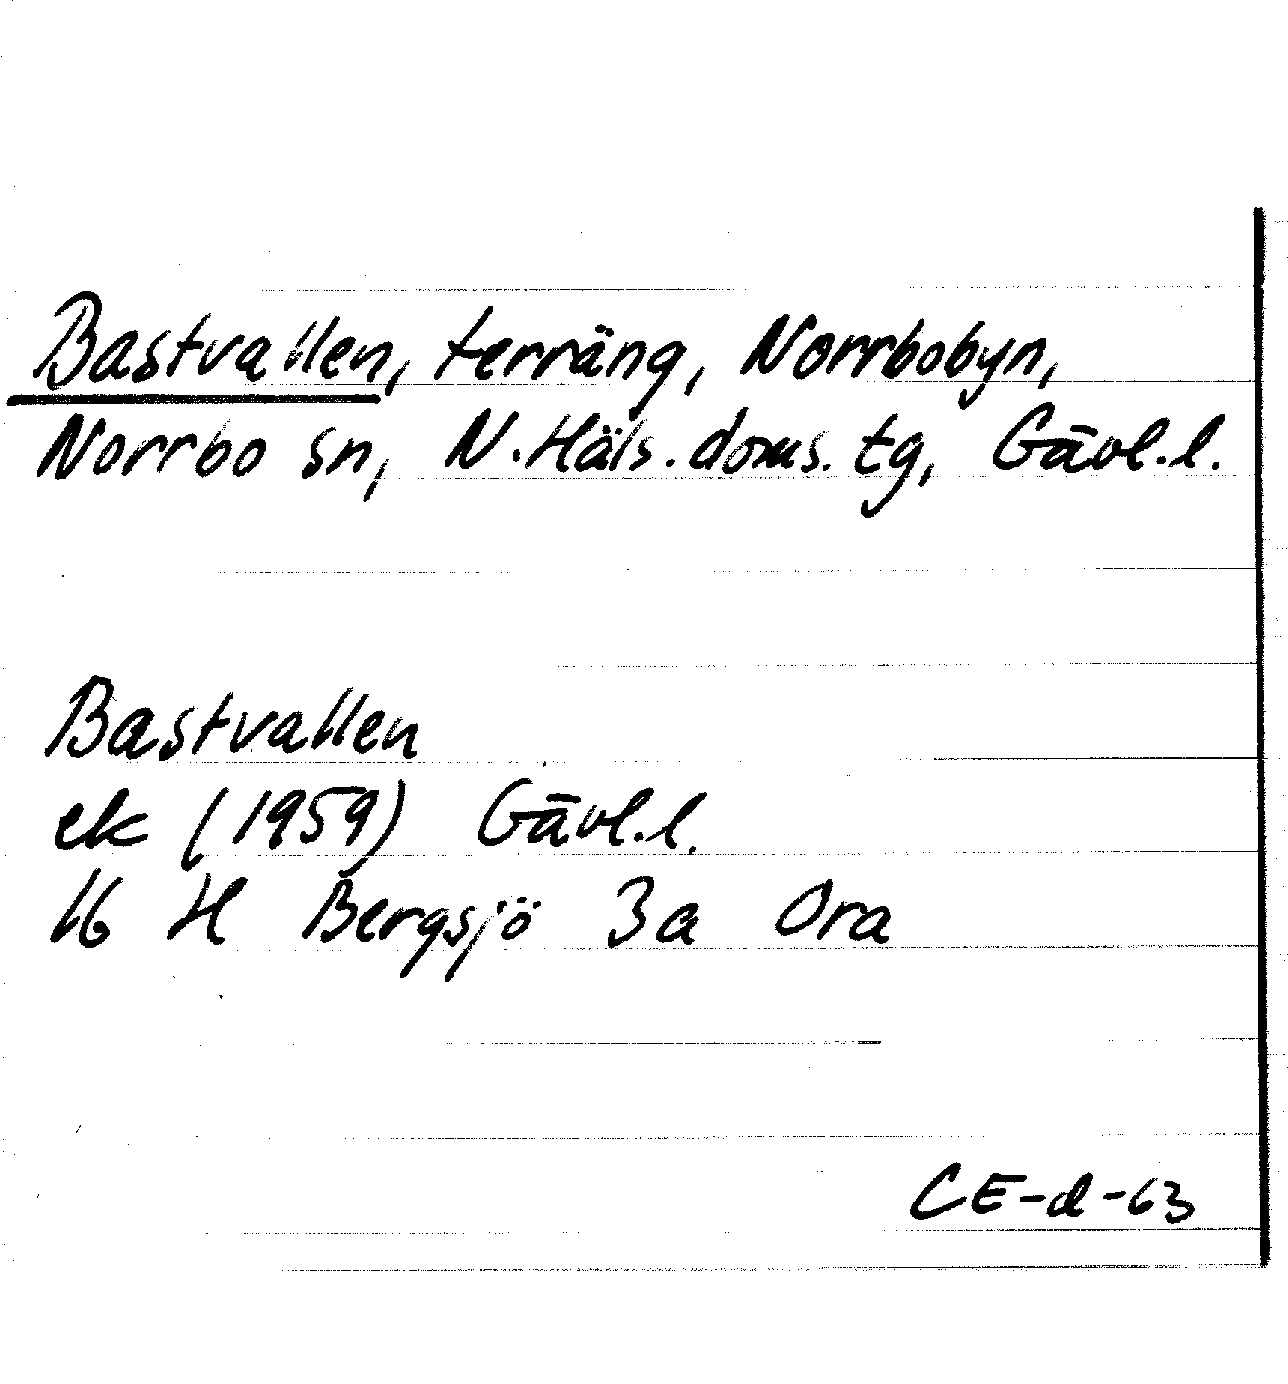 Bastvallen, terräng, Norrbobyn,
Norrbo sn, N. Häls. doms. tg, Gävl. l.
Bastvallen
ek (1959) Gävl. l.
16 H Bergsjö 3a Ora
CE-d-63